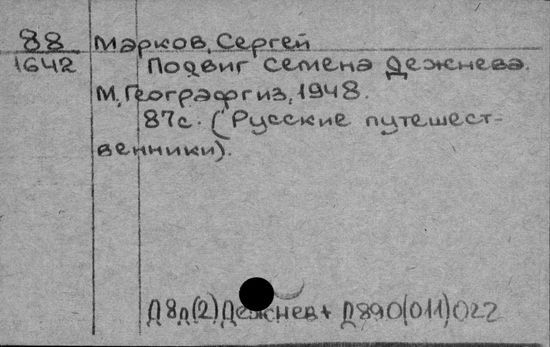 88 Марков, Сергей
1642 Подвиг Семена Дежнева.
М, Географгиз, 1948.
87с. (Русские путешест-
венники).
Д8д(2)Дежнев + Д890(011),022